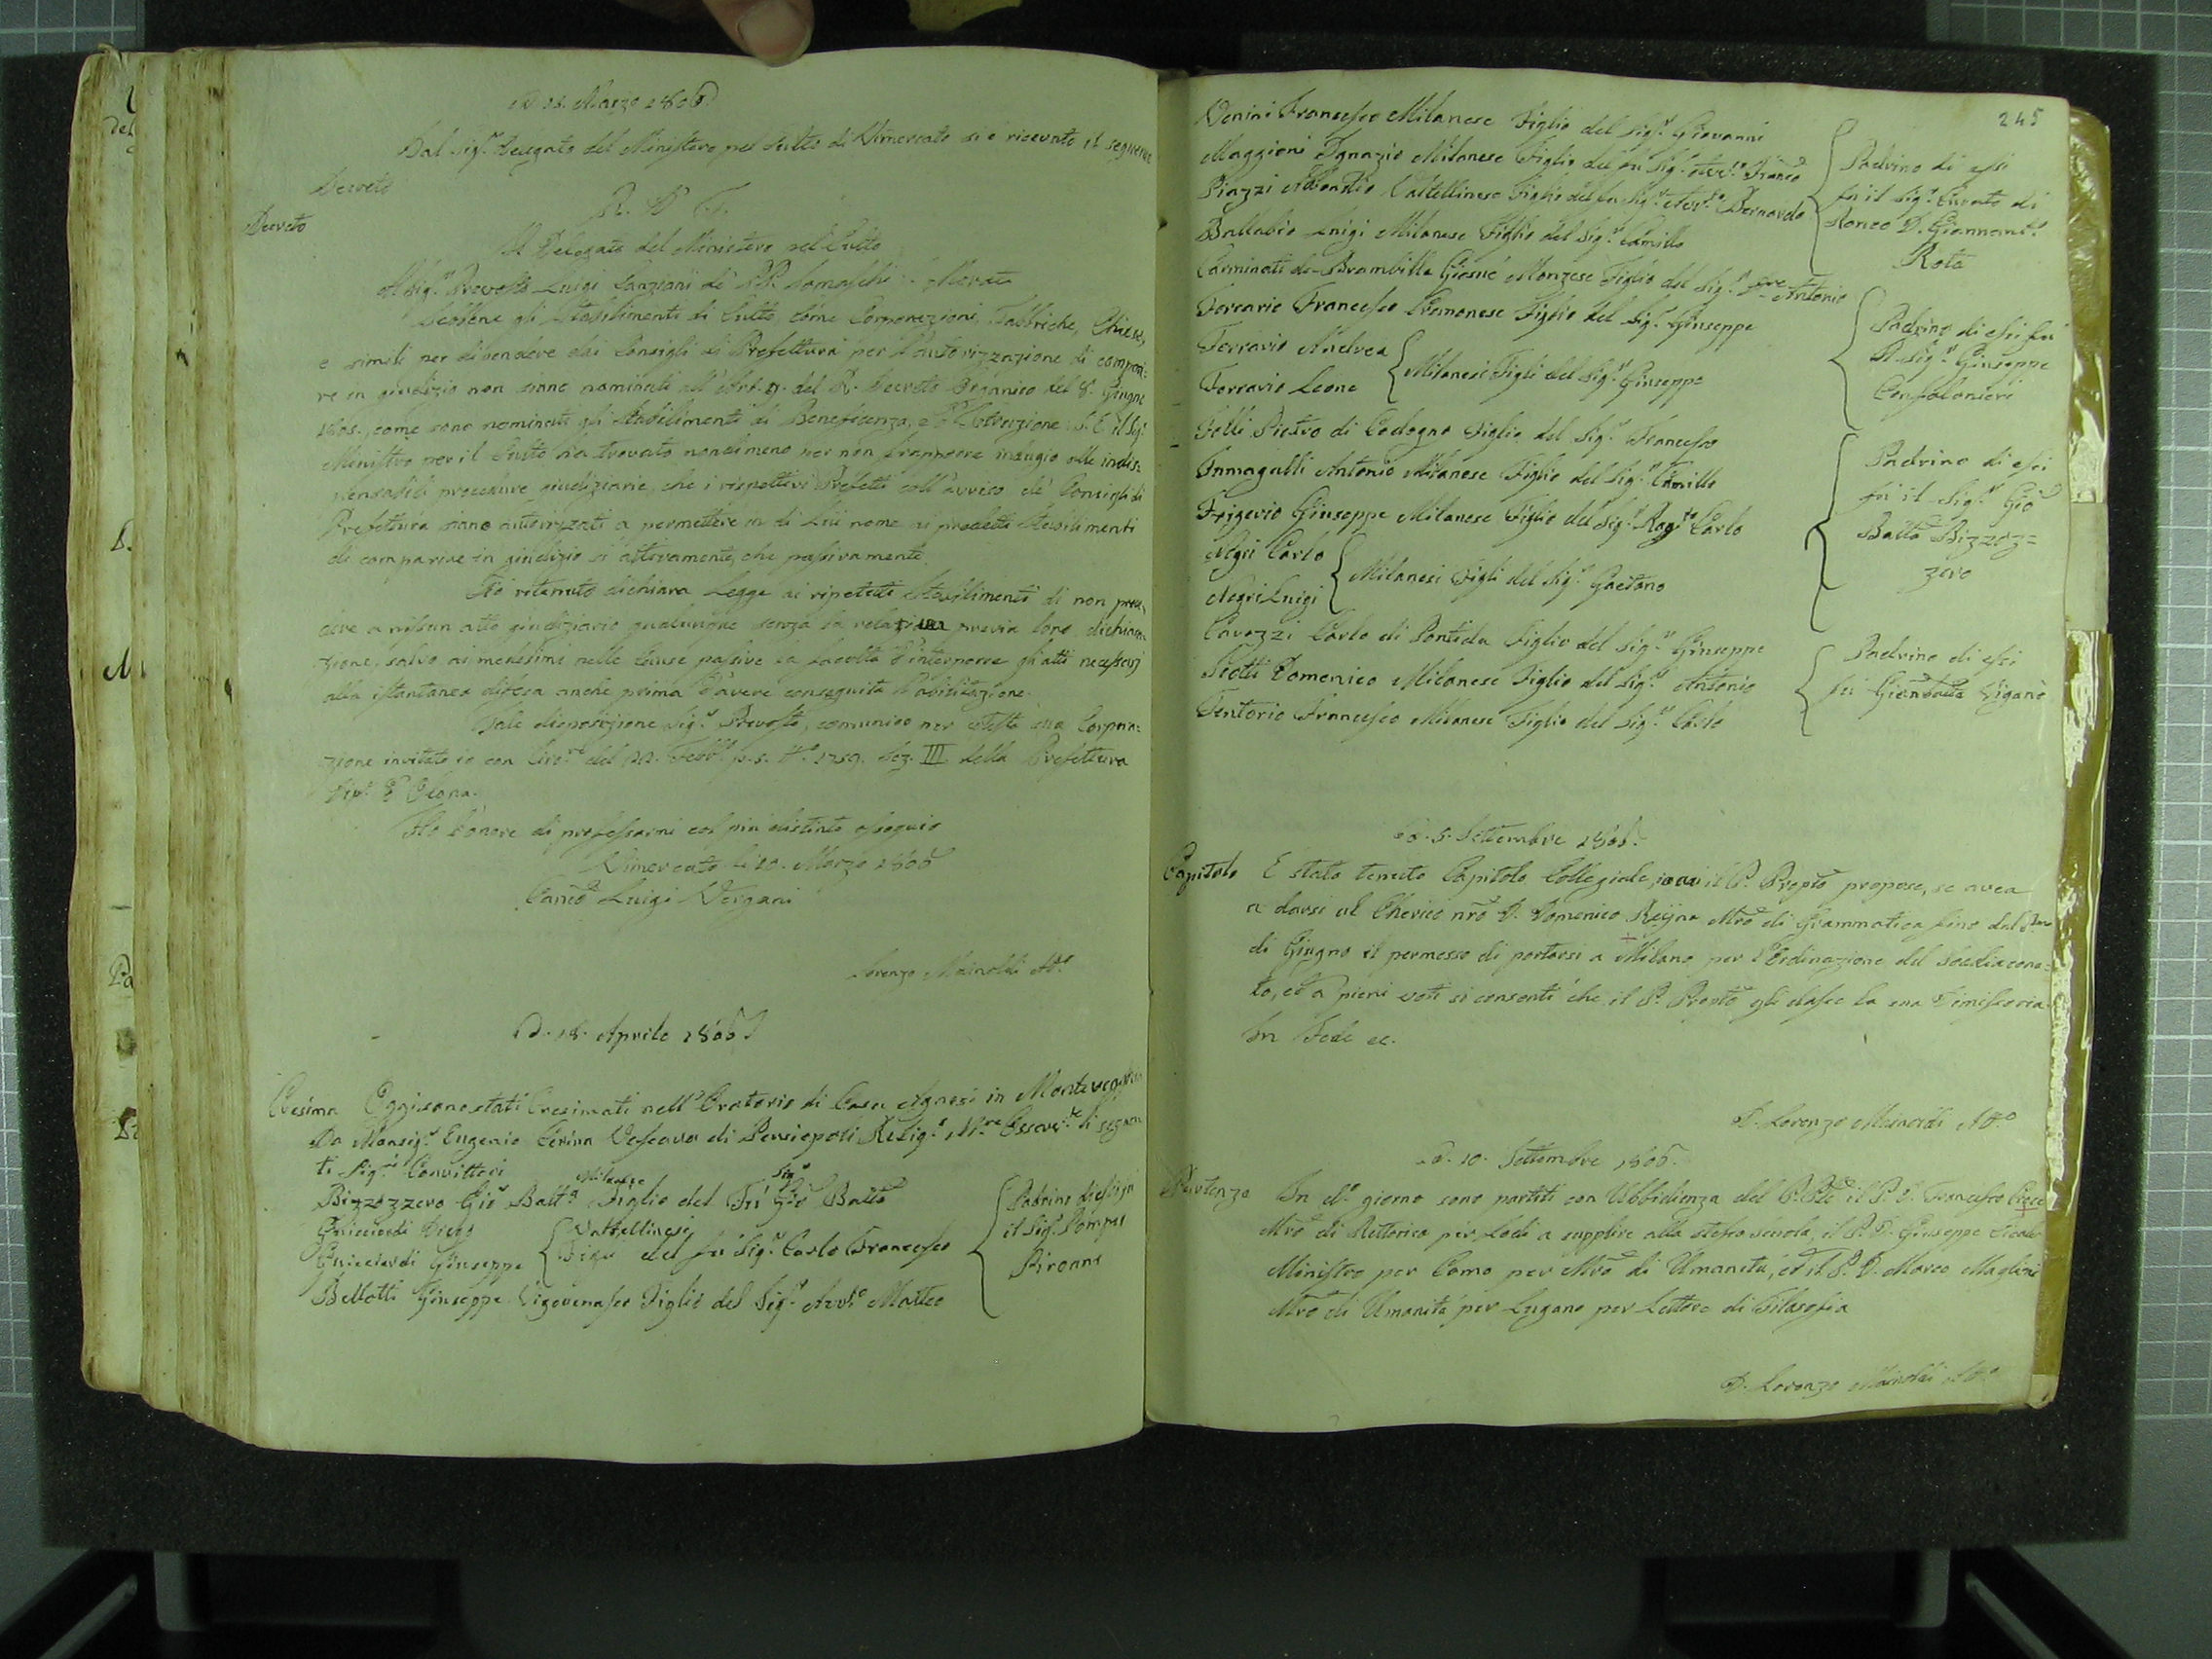 D. 18. Marzo 1806
Dal Sig.r Delegato del Ministero pel Culto di Vimercato si è ricevuto il seguente
Decreto
Decreto
R. D' I.
Il Delegato del Ministero pel Culto
Al Sig.r Prevosto Luigi Canziani de' PP. Somaschi Merate
Sebbene gli Stabilimenti di Culto, come Corporazioni, Fabbriche, Chiese,
e simili per dipendere dai Consigli di Prefettura per l'autorizzazione di compari-
re in giudizio non siano nominati all'Art. 9. del R. Decreto Organico del 8. Giugno
1805., come sono nominati gli Stabilimenti di Beneficenza, e d'Istruzione S. E. il Sig.r
Ministro per il Culto ha trovato nondimeno per non frapporre indugio alle indis-
pensabili procedure giudiziarie, che i rispettivi Prefetti coll'avviso de' Consigli di
Prefettura siano autorizzati a permettere in di Lui nome ai predetti Stabilimenti
di comparire in giudizio sì attivamente, che passivamente.
Ho ritenuto dichiara Legge ai ripetuti Stabilimenti di non proce-
dere a nissun atto giudiziario qualunque senza la relativa previa loro dichiara-
zione, salvo ai medesimi nelle Cause passive la facoltà d'interporre gli atti necessarj
alla istantanea difesa anche prima d'avere conseguita l'abilitazione.
Tale disposizione Sig.r Prevosto, comunico per cotesta sua Corpora-
zione invitato io con Circ.re del 22. Febb.o p.s. N.o 1759. Sez. III della Prefettura
Dip.e d'Olona.
Ho l'onore di professarmi col più distinto ossequio
Vimercato li 10. Marzo 1806
Can.co Luigi Vergani
Lorenzo Mainoldi Att.o
D. 18. Aprile 1806
Cresima Oggi sono stati Cresimati nell'Oratorio di Casa Agnesi in Montevecchia
Da Monsig.r Eugenio Cerina Vescovo di Pensiopoli Relig.o M.re Osserv.te li seguen
ti Sig.ri Convittori
Bizzozzero Gio Batt.a Milanese Figlio del Sig.r Gio Batta
Guicciardi Diego
Guicciardi Giuseppe { Valtellinesi Figli del fu Sig.r Carlo Francesco
Bellotti Giuseppe Vigevanasco Figlio del Sig.r Avv.o Matteo
{ Padrino di essi fu
il Sig.r Pompeo
Pironni
245
Venini Francesco Milanese Figlio del Sig.r Giovanni
Maggioni Ignazio Milanese Figlio del fu Sig.r Avv.to Franco
Piazzi Valtellinese Figlio del fu Sig.r Avv.to Bernardo
Ballabio Luigi Milanese Figlio del Sig.r Camillo
{ Padrino di essi
fu il Sig.r Curato di
Ronco D. Giannant.o
Rota
Carminati de-Brambilla Giosuè Monzese Figlio del Sig.r Antonio
Ferrario Francesco Cremonese Figlio del Sig.r Giuseppe
Ferrario Andrea
Ferrario Leone { Milanesi Figli del Sig.r Giuseppe
{ Padrino di essi fu
il Sig.r Giuseppe
Confalonieri
Felli Pietro di Codogno Figlio del Sig.r Francesco
Fumagalli Antonio Milanese Figlio del Sig.r Camillo
Frigerio Giuseppe Milanese Figlio del Sig.r Rag.to Carlo
Negri Carlo
Negri Luigi { Milanesi Figli del Sig.r Gaetano
{ Padrino di essi
fu il Sig.r Gio
Batta Bizzoz=
zero
Cavazzi Carlo di Pontida Figlio del Sig.r Giuseppe
Scotti Domenico Milanese Figlio del Sig.r Antonio
Tentorio Francesco Milanese Figlio del Sig.r Carlo
{ Padrino di essi
fu Gianbatta Viganò
D. 5. Settembre 1806.
Capitolo È stato tenuto Capitolo Collegiale, in cui il P. Prepto propose, se avea
a darsi al Cherico nrõ D. Domenico Reijna Mrõ di Grammatica fino dal P.mo
di Giugno il permesso di portarsi a Milano per l'Ordinazione del Soddiacona-
to, ed a pieni voti si consentì che il P. Prepto gli dasse la sua Dimissoria.
In Fede ec.
D. Lorenzo Mainoldi Att.o
D. 10. Settembre 1806.
Partenze In d.o giorno sono partiti con Ubbidienza del P. il P. D. Francesco
Mrõ di Rettorica per Lodi a supplire alla stessa scuola, il P. D. Giuseppe
Ministro per Como per Mrõ di Umanità, ed il P. D. Marco
Mrõ di Umanità per Lugano per Lettore di Filosofia
D. Lorenzo Mainoldi Att.o